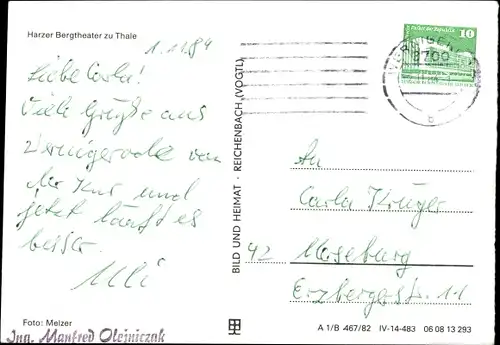 Harzer Bergtheater zu Thale
1.11.84
Liebe Carla!
Viele Grüße aus
Wernigerode von
der Kur und
jetzt läuft es
besser.
Ulli
Foto: Melzer
Ing. Manfred Olejniczak
BILD UND HEIMAT · REICHENBACH (VOGTL)
10
WERNIGERODE
3700
b
An
Carla Krüger
42 Merseburg
Erzbergerstr. 11
A 1/B 467/82 IV-14-483 06 08 13 293